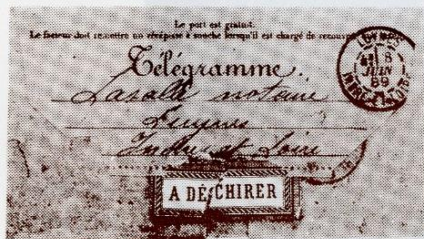 Le port est gratuit.
Le facteur doit remettre un récépissé à souche lorsqu'il est chargé de recouvrer
Télégramme.
Lasalle notaire
Luynes
Indre et Loire
LUYNES
8
JUIN
89
INDRE-ET-LOIRE
A DÉCHIRER